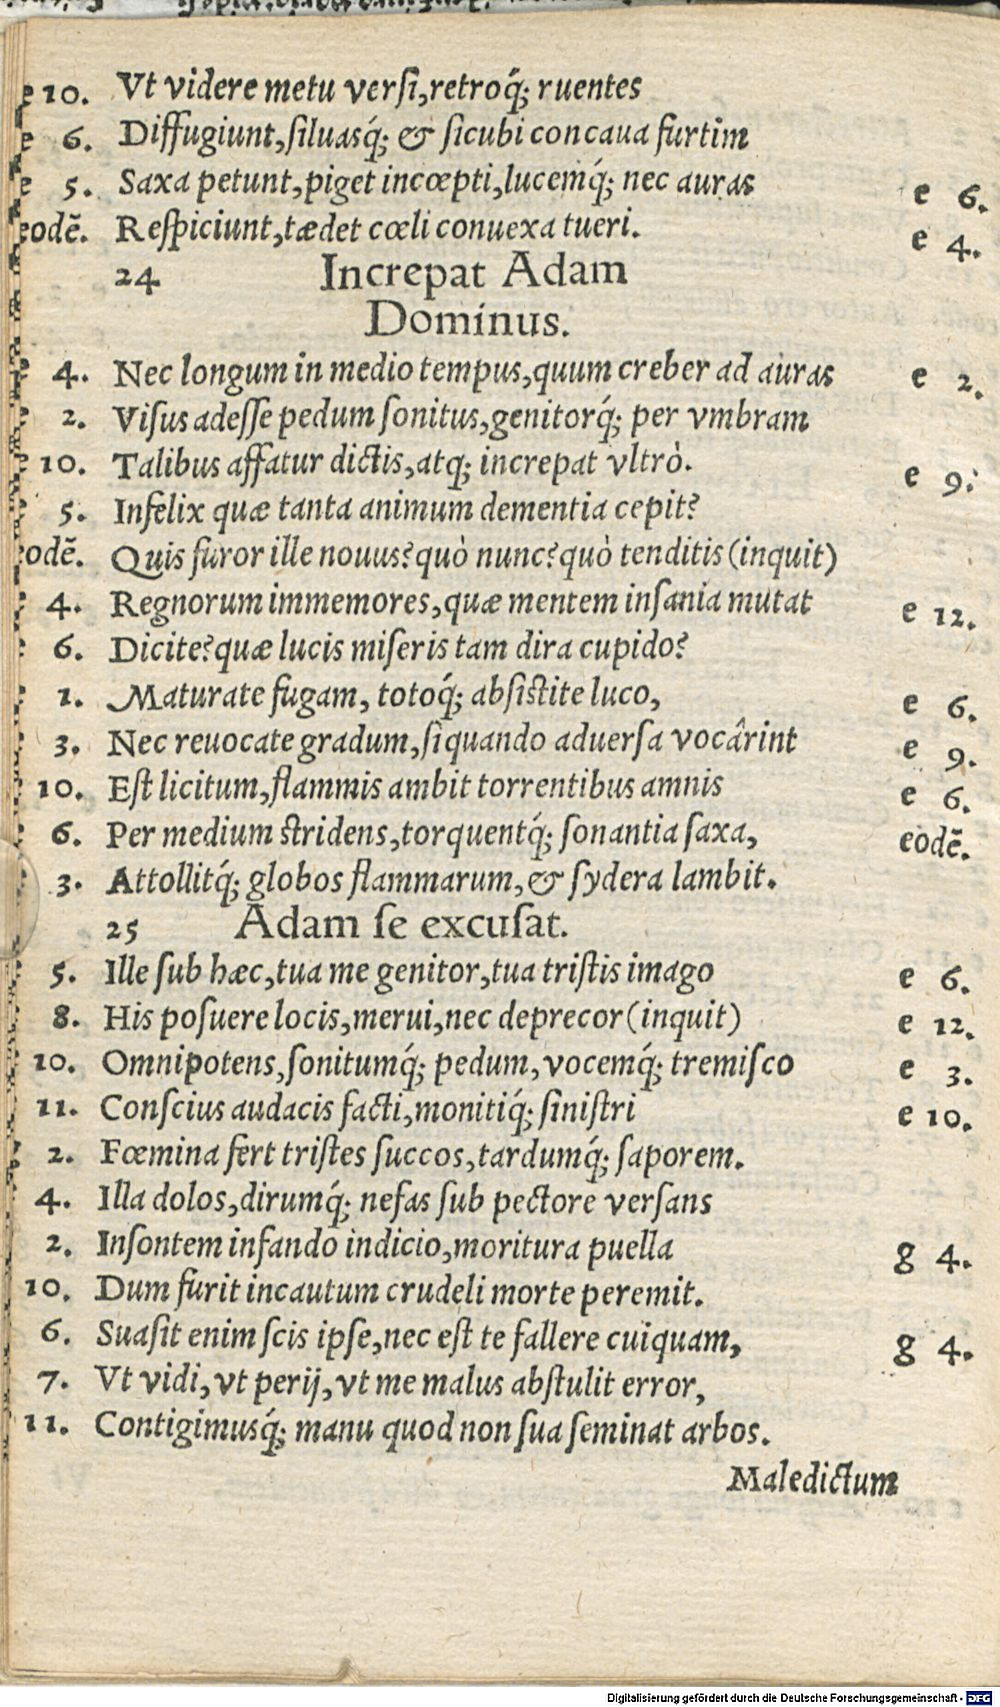 e 10. Vt videre metu versi,retroq́; ruentes
e 6. Diffugiunt,siluasq́; & sicubi concaua furtim
e 5. Saxa petunt,piget incœpti,lucemq́; nec auras e 6.
eodē. Respiciunt,tædet cœli conuexa tueri. e 4.
24 Increpat Adam
Dominus.
4. Nec longum in medio tempus,quum creber ad auras e 2.
2. Visus adesse pedum sonitus,genitorq́; per vmbram
10. Talibus affatur dictis,atq; increpat vltrò. e 9.
5. Infelix quæ tanta animum dementia cepit?
eodē. Quis furor ille nouus?quò nunc?quò tenditis(inquit)
4. Regnorum immemores,quæ mentem insania mutat e 12.
6. Dicite?quæ lucis miseris tam dira cupido?
1. Maturate fugam, totoq́; absistite luco, e 6.
3. Nec reuocate gradum,si quando aduersa vocârint e 9.
10. Est licitum,flammis ambit torrentibus amnis e 6.
6. Per medium stridens,torquentq́; sonantia saxa, eodē.
3. Attollitq́; globos flammarum,& sydera lambit.
25 Adam se excusat.
5. Ille sub hæc,tua me genitor,tua tristis imago e 6.
8. His posuere locis,merui,nec deprecor(inquit) e 12.
10. Omnipotens,sonitumq́; pedum,vocemq́; tremisco e 3.
11. Conscius audacis facti,monitiq́; sinistri e 10.
2. Fœmina fert tristes succos,tardumq́; saporem.
4. Illa dolos,dirumq́; nefas sub pectore versans
2. Insontem infando indicio,moritura puella g 4.
10. Dum furit incautum crudeli morte peremit.
6. Suasit enim scis ipse,nec est te fallere cuiquam, g 4.
7. Vt vidi,vt perij,vt me malus abstulit error,
11. Contigimusq́; manu quod non sua seminat arbos.
Maledictum
Digitalisierung gefördert durch die Deutsche Forschungsgemeinschaft - DFG